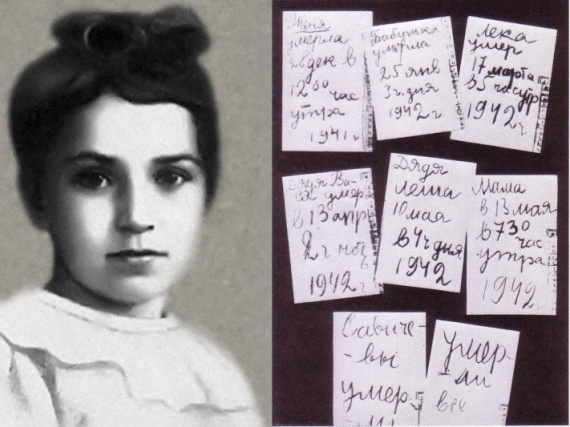 Женя
умерла
28 дек в
12 00 час
утра
1941 г
Бабушка
умерла
25 янв
3 ч. дня
1942 г
Лека
умер
17 марта
в 5 час утр
1942 г
Дядя Ва-
ся умер
в 13 апр
2 ч ночь
1942 г
Дядя
Леша
10 мая
в 4 ч дня
1942
Мама
в 13 мая
в 7 30
час
утра
1942 г
Савиче-
-вы
умер-
умер-
ли
все